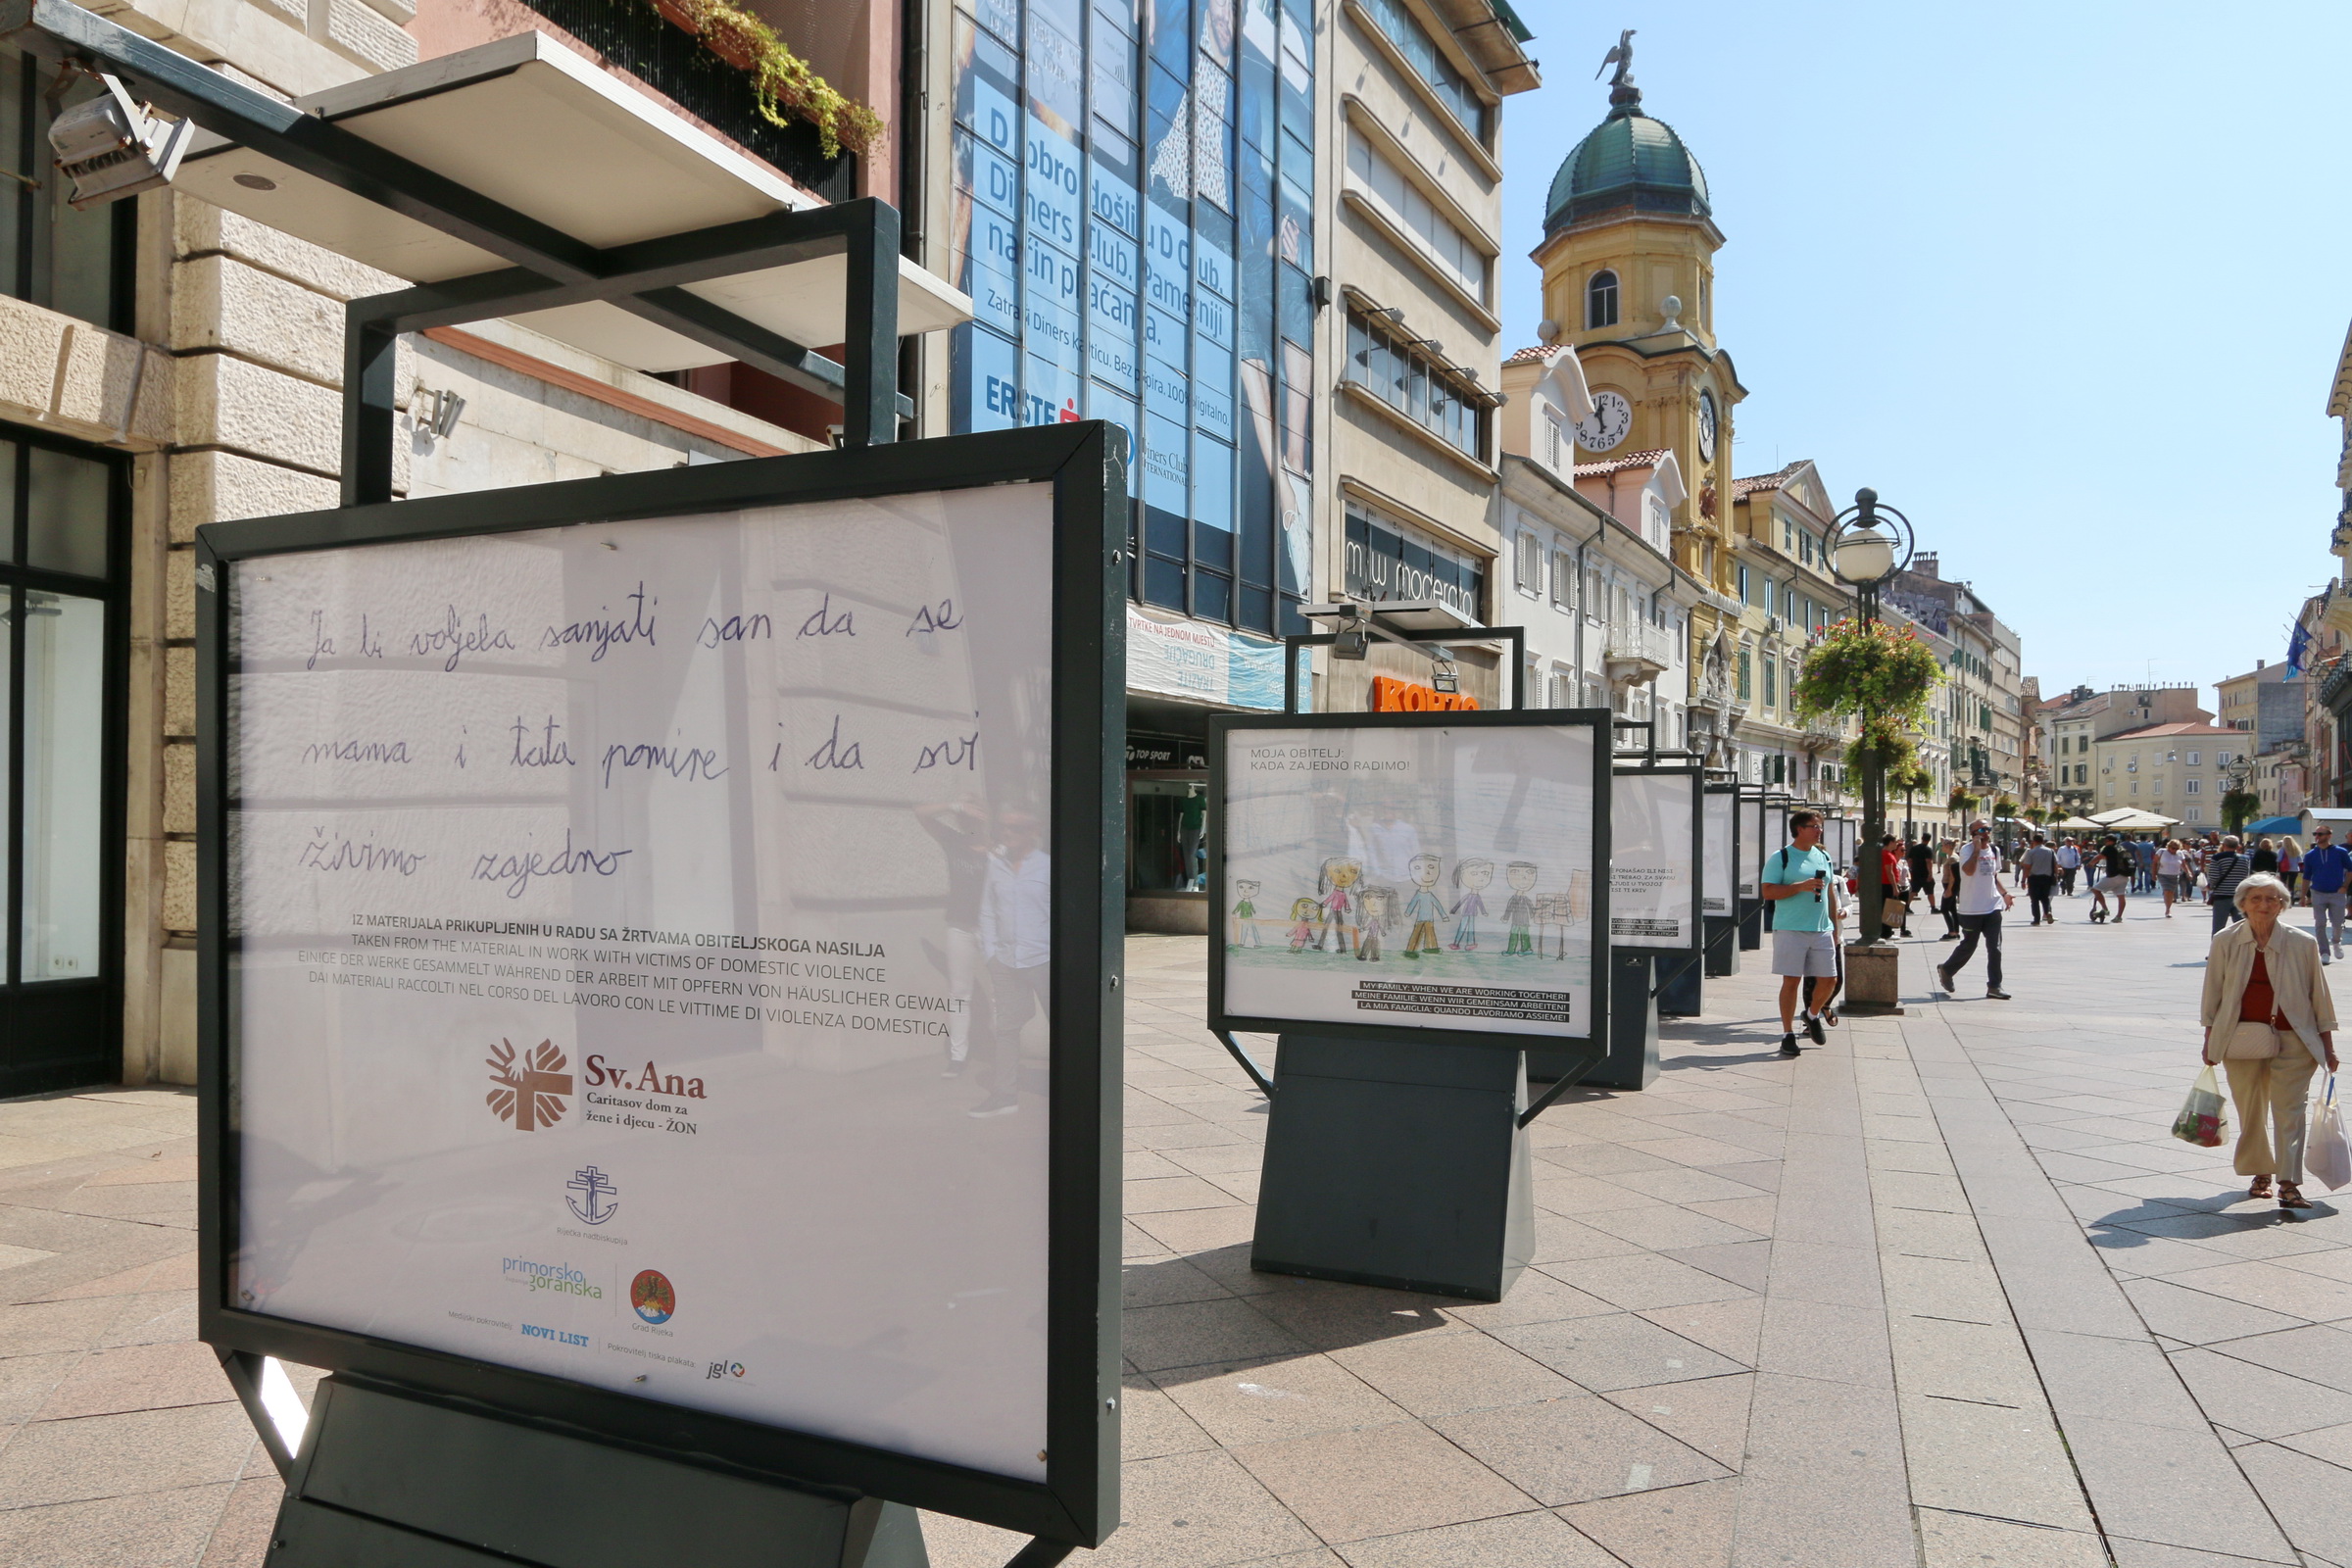 Ja bi voljela sanjati san da se
mama i tata pomire i da svi
živimo zajedno
IZ MATERIJALA PRIKUPLJENIH U RADU SA ŽRTVAMA OBITELJSKOGA NASILJA
TAKEN FROM THE MATERIAL IN WORK WITH VICTIMS OF DOMESTIC VIOLENCE
EINIGE DER WERKE GESAMMELT WÄHREND DER ARBEIT MIT OPFERN VON HÄUSLICHER GEWALT
DAI MATERIALI RACCOLTI NEL CORSO DEL LAVORO CON LE VITTIME DI VIOLENZA DOMESTICA
Sv.Ana
Caritasov dom za
žene i djecu - ŽON
Riječka nadbiskupija
primorsko
goranska
Grad Rijeka
Medijski pokrovitelj
NOVI LIST
Pokrovitelj tiska plakata:
jgl
Dobro došli u D Club.
Diners Club. Pametniji
način plaćanja.
Zatraži Diners karticu. Bez papira. 100% digitalno.
ERSTE
Diners Club
INTERNATIONAL
m w moderato
TVRTKE NA JEDNOM MJESTU
DRUGAČIJE
TRAŽITE
KORZO
TOP SPORT
MOJA OBITELJ:
KADA ZAJEDNO RADIMO!
MY FAMILY: WHEN WE ARE WORKING TOGETHER!
MEINE FAMILIE: WENN WIR GEMEINSAM ARBEITEN!
LA MIA FAMIGLIA: QUANDO LAVORIAMO ASSIEME!
11 12 1
8 7 6 5